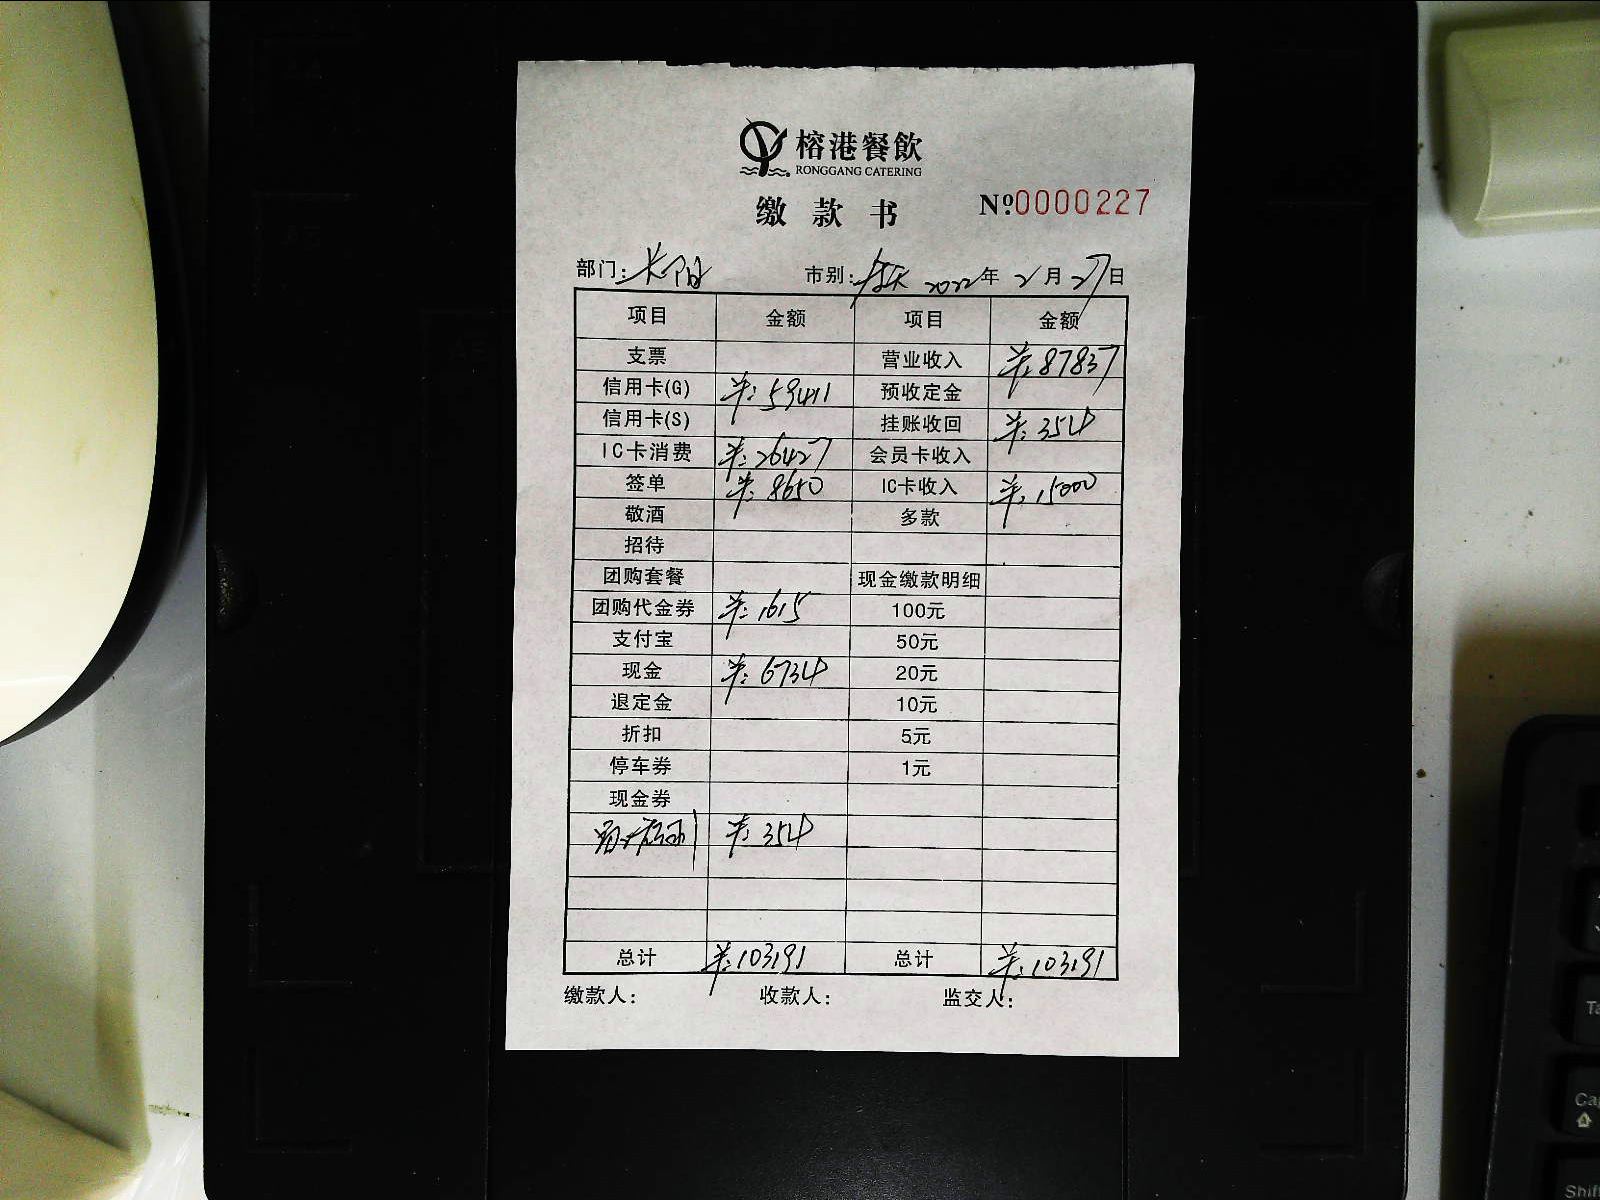 榕港餐飲
RONGGANG CATERING
缴款书 №0000227
部门: 长阳 市别: 全天 2022年 2月 27日
项目 金额 项目 金额
支票 营业收入 ¥:87837
信用卡(G) ¥:59411 预收定金
信用卡(S) 挂账收回 ¥:354
IC卡消费 ¥:26427 会员卡收入
签单 ¥:8650 IC卡收入 ¥:15000
敬酒 多款
招待
团购套餐 现金缴款明细
团购代金券 ¥:1615 100元
支付宝 50元
现金 ¥:6734 20元
退定金 10元
折扣 5元
停车券 1元
现金券
¥:354
总计 ¥:103191 总计 ¥:103191
缴款人: 收款人: 监交人: